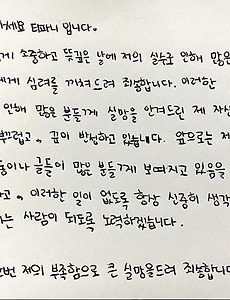 하세요 티파니 입니다.
게 소중하고 뜻깊은 날에 저의 실수로 인해 많은
에게 심려를 끼쳐드려 죄송합니다. 이러한
인해 많은 분들께 실망을 안겨드린 제 자신
부끄럽고, 깊이 반성하고 있습니다. 앞으로는 제
동이나 글들이 많은 분들께 보여지고 있음을
하고, 이러한 일이 없도록 항상 신중히 생각
하는 사람이 되도록 노력하겠습니다.
번 저의 부족함으로 큰 실망을드려 죄송합니다